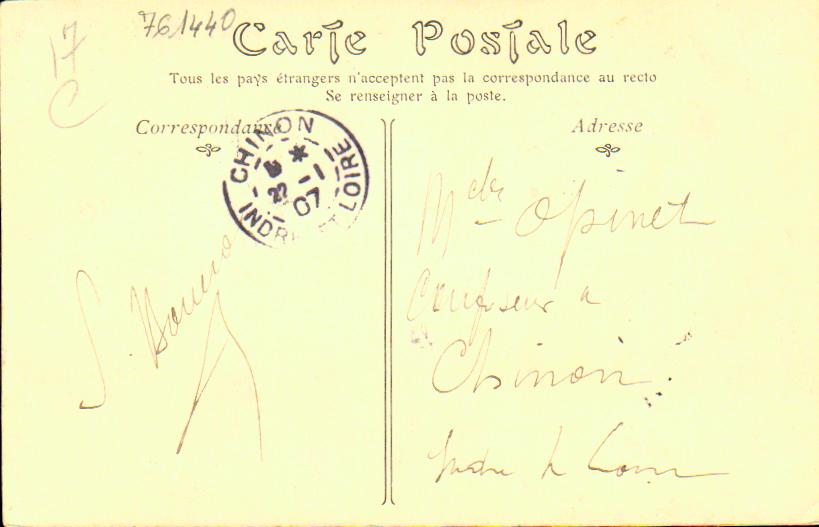 17
C
761440
Carte Postale
Tous les pays étrangers n'acceptent pas la correspondance au recto
Se renseigner à la poste.
Correspondance
Adresse
CHINON
22 - 1
07
INDRE ET LOIRE
S.
Opinet
Confiseur a
Chinon
Indre & Loire